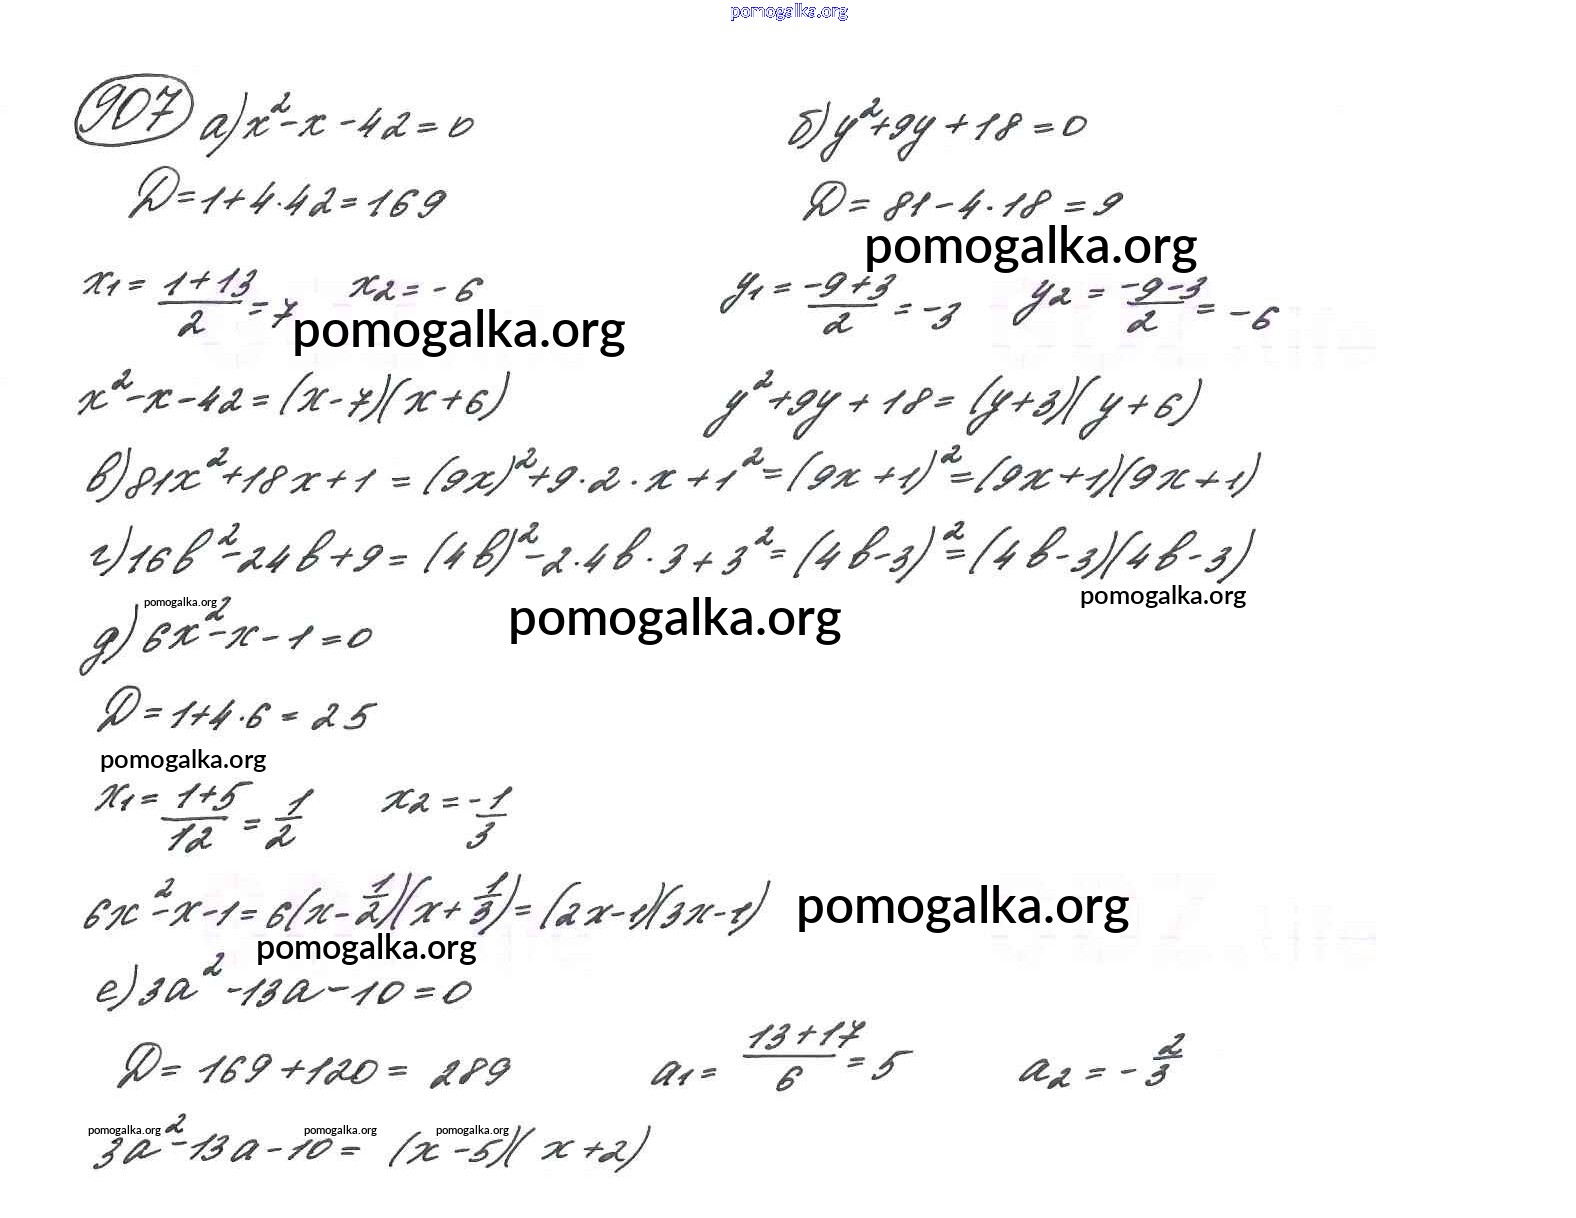 pomogalka.org
907 а) x²-x-42=0 б) y²+9y+18=0
Д=1+4·42=169 Д=81-4·18=9
pomogalka.org
x₁=(1+13)/2=7 x₂=-6 y₁=(-9+3)/2=-3 y₂=(-9-3)/2=-6
pomogalka.org
x²-x-42=(x-7)(x+6) y²+9y+18=(y+3)(y+6)
в) 81x²+18x+1=(9x)²+9·2·x+1²=(9x+1)²=(9x+1)(9x+1)
г) 16b²-24b+9=(4b)²-2·4b·3+3²=(4b-3)²=(4b-3)(4b-3)
pomogalka.org pomogalka.org pomogalka.org
д) 6x²-x-1=0
Д=1+4·6=25
pomogalka.org
x₁=(1+5)/12=1/2 x₂=-1/3
6x²-x-1=6(x-1/2)(x+1/3)=(2x-1)(3x-1) pomogalka.org
pomogalka.org
е) 3a²-13a-10=0
Д=169+120=289 a₁=(13+17)/6=5 a₂=-2/3
pomogalka.org pomogalka.org pomogalka.org
3a²-13a-10=(x-5)(x+2)